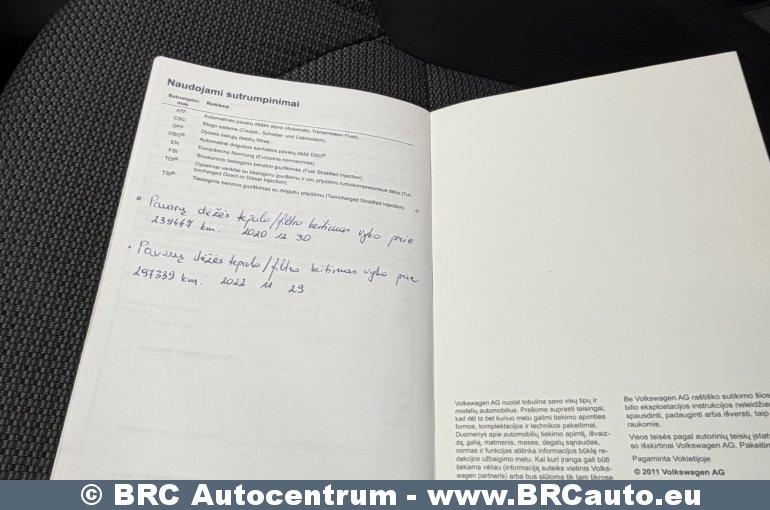 Naudojami sutrumpinimai
Sutrumpini-
mas
Reikšmė
ATF Automatinės pavarų dėžės alyva (Automatic Transmission Fluid).
CSC Stogo sistema (Coupé-, Schiebe- und Cabriodach).
DPF Dyzelio kietųjų dalelių filtras.
DSG® Automatinė dvigubos sankabos pavarų dėžė DSG®.
EN Europäische Normung (Europinis normavimas).
FSI Sluoksninis tiesioginis benzino įpurškimas (Fuel Stratified Injection).
TDI® Dyzeliniai varikliai su tiesioginiu įpurškimu ir oro pripūtimu turbokompresoriaus dėka (Tur-
bocharged Direct or Diesel Injection).
TSI® Tiesioginis benzino įpurškimas su dvigubu pripūtimu (Twincharged Stratified Injection).
• Pavarų dėžės tepalo/filtro keitimas vyko prie
239447 km. 2020 12 30
• Pavarų dėžės tepalo/filtro keitimas vyko prie
297339 km. 2022 11 29
Volkswagen AG nuolat tobulina savo visų tipų ir
modelių automobilius. Prašome suprasti teisingai,
kad dėl to bet kuriuo metu galimi tiekimo apimties
formos, komplektacijos ir technikos pakeitimai.
Duomenys apie automobilių tiekimo apimtį, išvaiz-
dą, galią, matmenis, mases, degalų sąnaudas,
normas ir funkcijas atitinka informacijos būklę re-
dakcijos užbaigimo metu. Kai kuri įranga gali būti
tiekiama vėliau (informaciją suteiks vietinis Volks-
wagen partneris) arba bus siūloma tik tam tikrose
Be Volkswagen AG raštiško sutikimo šios
bilio eksploatacijos instrukcijos neleidžia
spausdinti, padauginti arba išversti, taip
raukomis.
Visos teisės pagal autorinių teisių įstat
so išskirtinai Volkswagen AG. Pakeitim
Pagaminta Vokietijoje
© 2011 Volkswagen AG
© BRC Autocentrum - www.BRCauto.eu